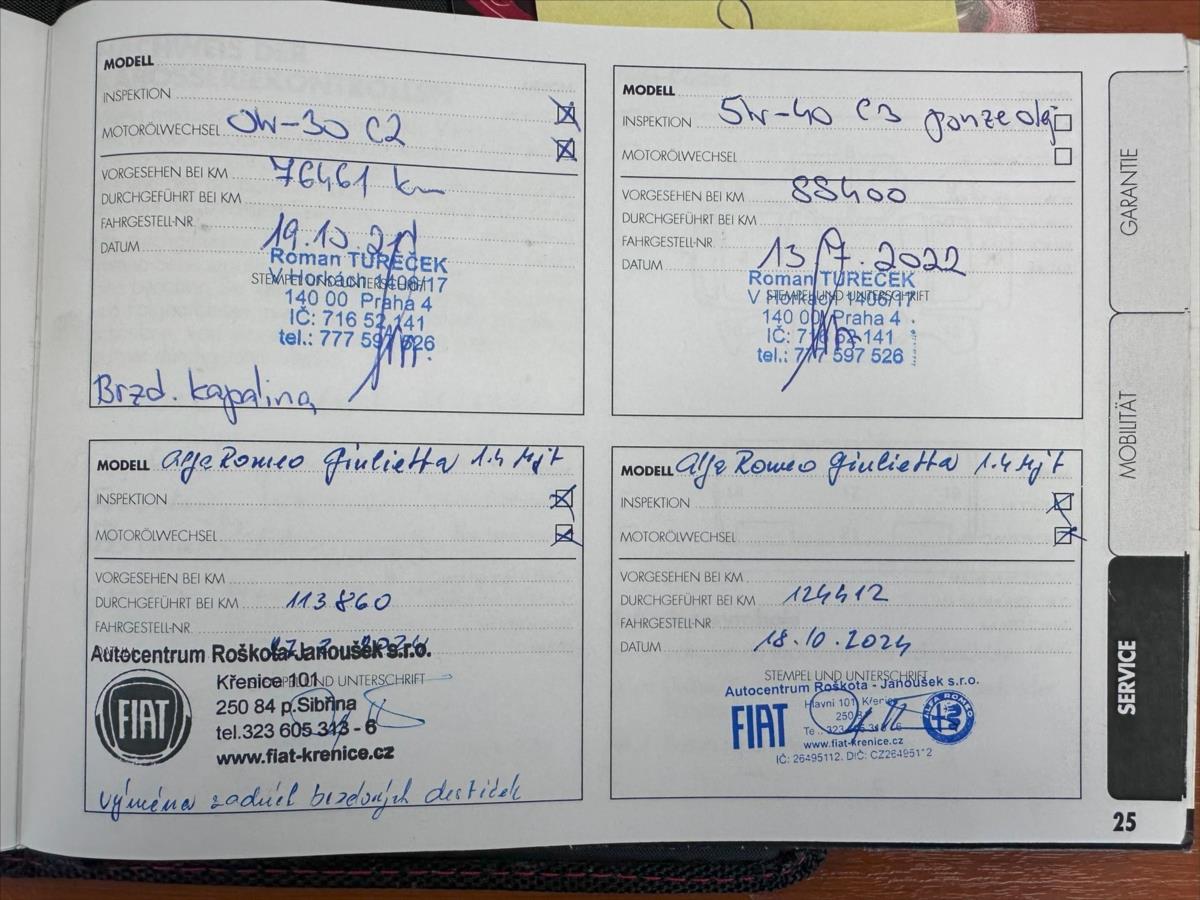 MODELL
INSPEKTION
MOTORÖLWECHSEL 0W-30 C2
VORGESEHEN BEI KM 76461 km
DURCHGEFÜHRT BEI KM
FAHRGESTELL-NR.
DATUM 19.10.
Roman TUREČEK
STEMPEL UND UNTERSCHRIFT
V Horkách 1406/17
140 00 Praha 4
IČ: 716 52 141
tel.: 777 597 526
Brzd. kapalina
MODELL
INSPEKTION 5W-40 C3 pouze olej
MOTORÖLWECHSEL
VORGESEHEN BEI KM 88400
DURCHGEFÜHRT BEI KM
FAHRGESTELL-NR.
DATUM 13.7.2022
Roman TUREČEK
STEMPEL UND UNTERSCHRIFT
V Horkách 1406/17
140 00 Praha 4
IČ: 716 52 141
tel.: 777 597 526
MODELL Alfa Romeo Giulietta 1.4 Mjt
INSPEKTION
MOTORÖLWECHSEL
VORGESEHEN BEI KM
DURCHGEFÜHRT BEI KM 113860
FAHRGESTELL-NR.
DATUM
Autocentrum Roškota-Janoušek s.r.o.
STEMPEL UND UNTERSCHRIFT
FIAT
Křenice 101
250 84 p.Sibřina
tel.323 605 313 - 6
www.fiat-krenice.cz
výměna zadních brzdových destiček
MODELL Alfa Romeo Giulietta 1.4 Mjt
INSPEKTION
MOTORÖLWECHSEL
VORGESEHEN BEI KM
DURCHGEFÜHRT BEI KM 124412
FAHRGESTELL-NR.
DATUM 18.10.2024
STEMPEL UND UNTERSCHRIFT
Autocentrum Roškota - Janoušek s.r.o.
FIAT
ALFA ROMEO
Hlavní 101, Křenice
www.fiat-krenice.cz
IČ: 26495112, DIČ: CZ26495112
GARANTIE
MOBILITÄT
SERVICE
25